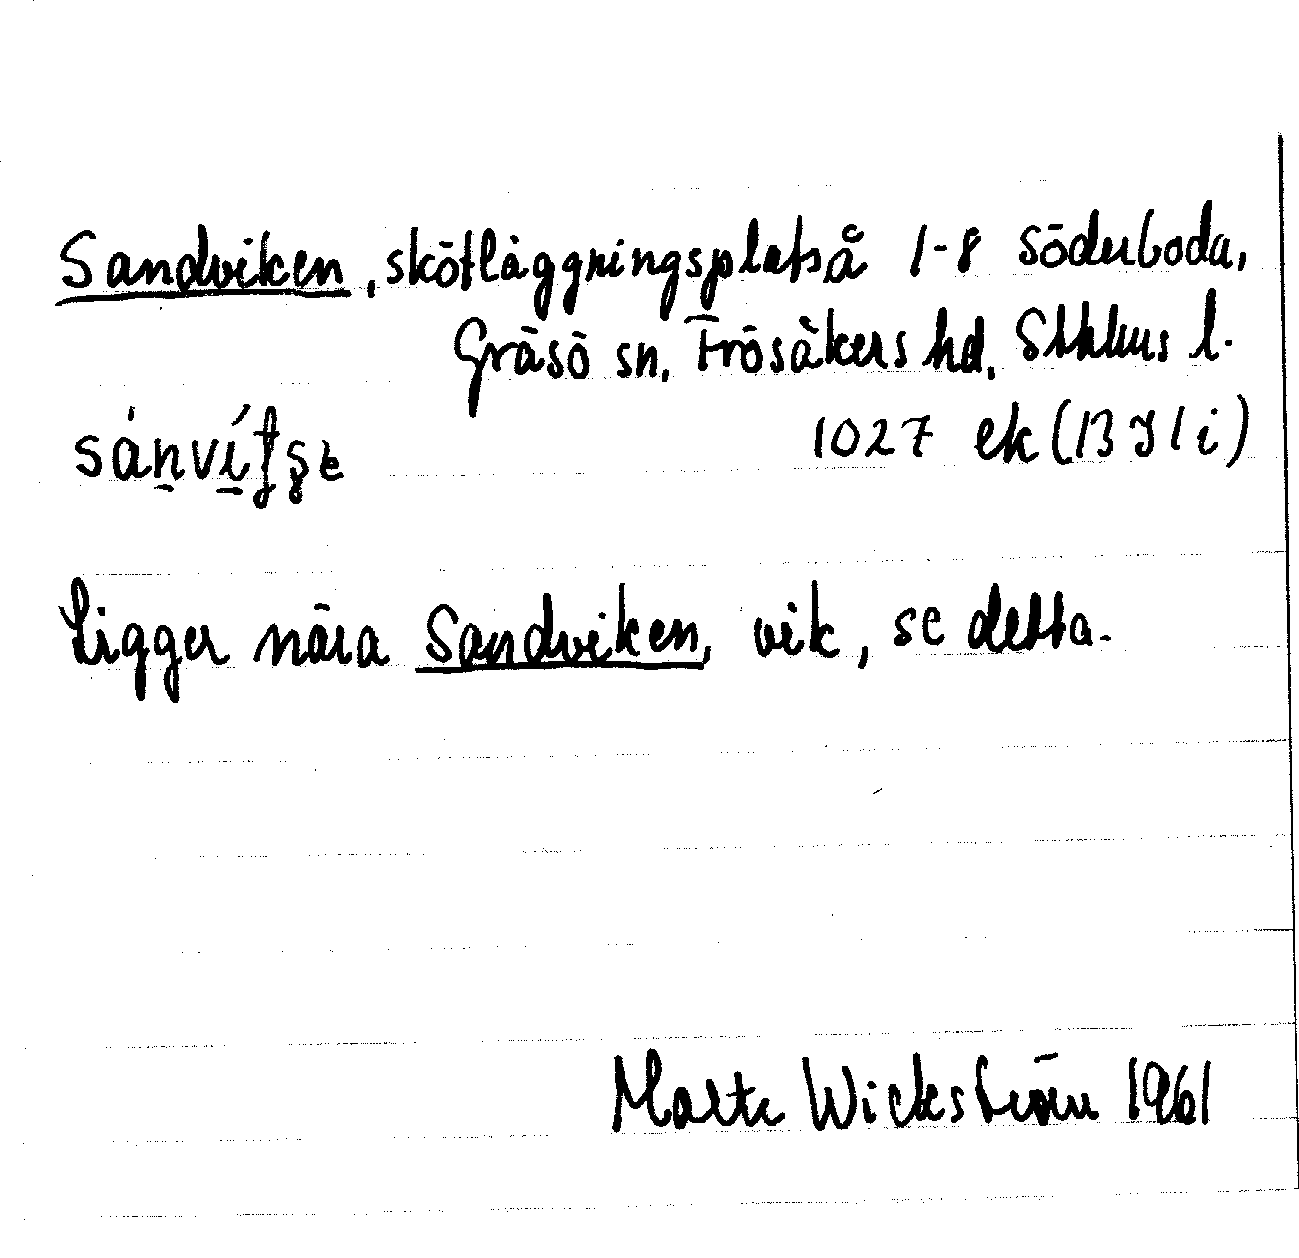 Sandviken, skötläggningsplats å 1-8 Söderboda,
Gräsö sn, Frösåkers hd, Sthlms l.
1027 ek (13 I 1 i)
Ligger nära Sandviken, vik, se detta.
Wickström 1961